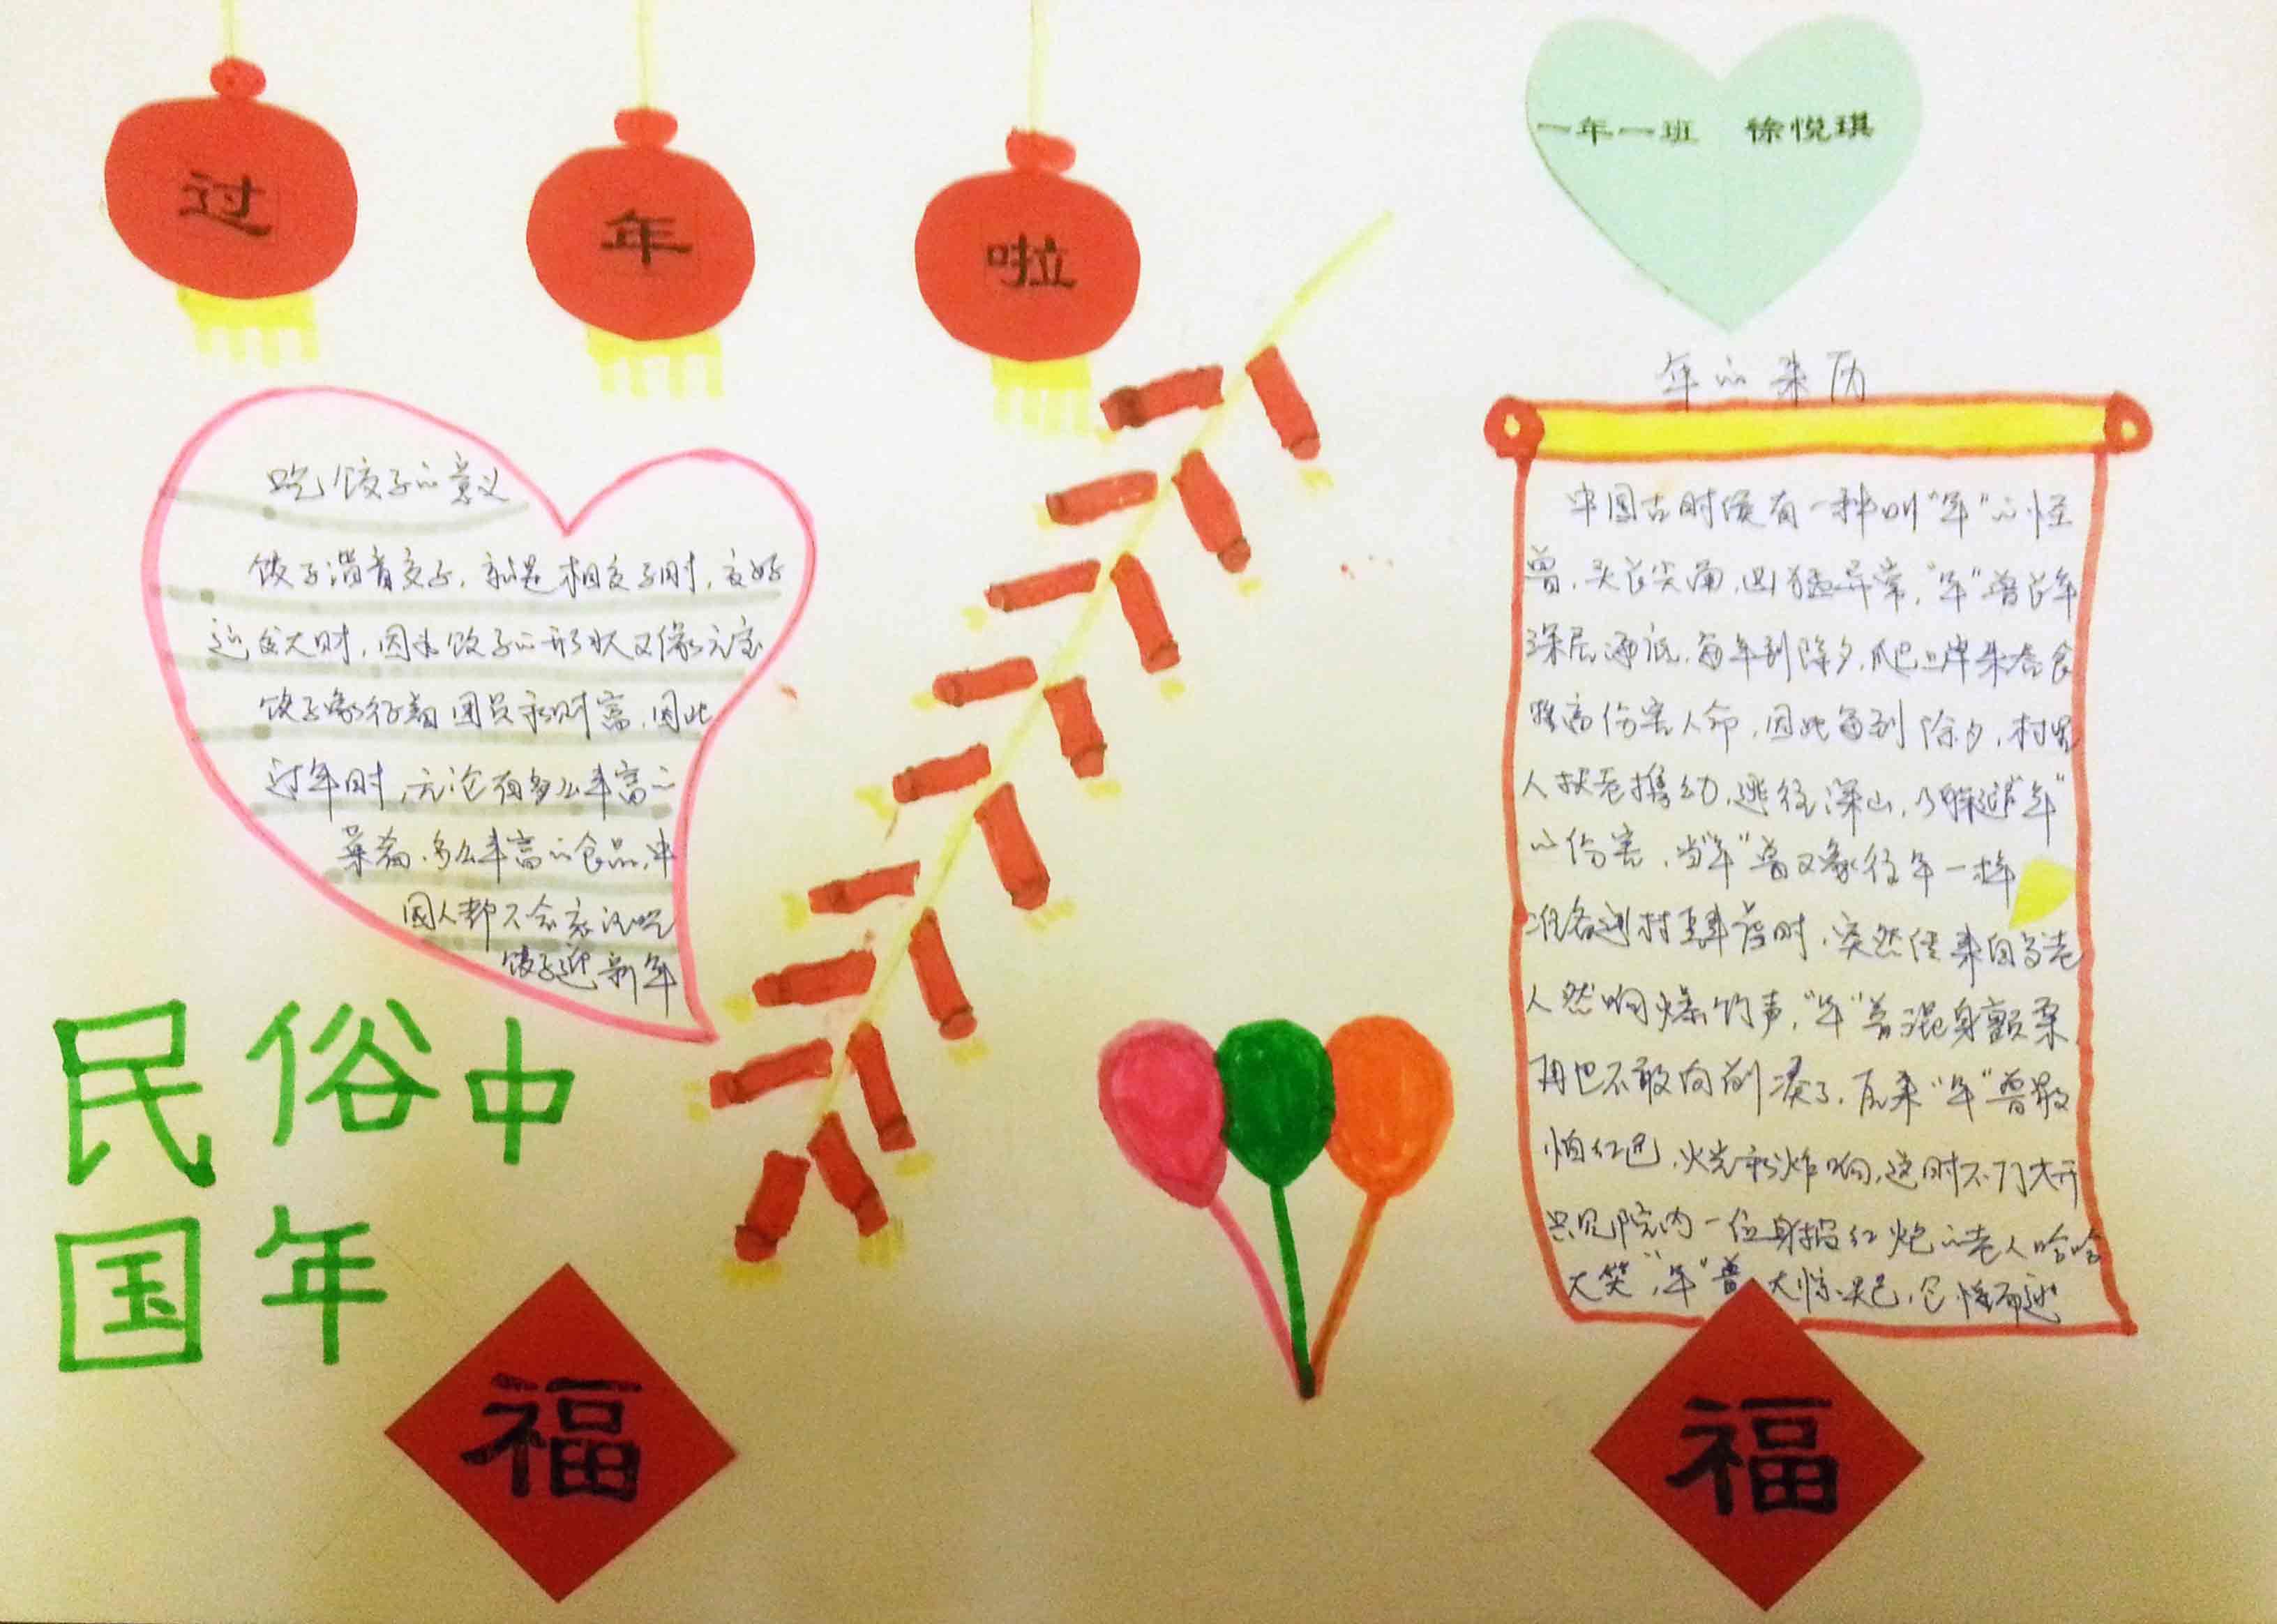 过 年 啦
一年一班 徐悦琪
吃饺子的意义
饺子谐音交子，就是相交子时，交好
运发大财，因为饺子的形状又像元宝
饺子象征着团员和财富，因此
过年时，无论有多么丰富的
菜肴，多么丰富的食品，中
国人都不会忘记吃
饺子迎新年
民俗中
国年
福
年的来历
中国古时候有一种叫“年”的怪
兽，头长尖角，凶猛异常，“年”兽长年
深居海底，每年到除夕，爬上岸来吞食
伤害人命，因此每到除夕，村里
人扶老携幼，逃往深山，乃躲避“年”
的伤害，当“年”兽又象往年一样
准备进村时，突然传来白老
人然响爆竹声，“年”兽混身颤栗
再也不敢向前凑了，原来“年”兽最
怕红色，火光和炸响，这时大门大开
只见院内一位身披红炮的老人哈哈
大笑，“年”兽大惊失色，仓惶而逃
福